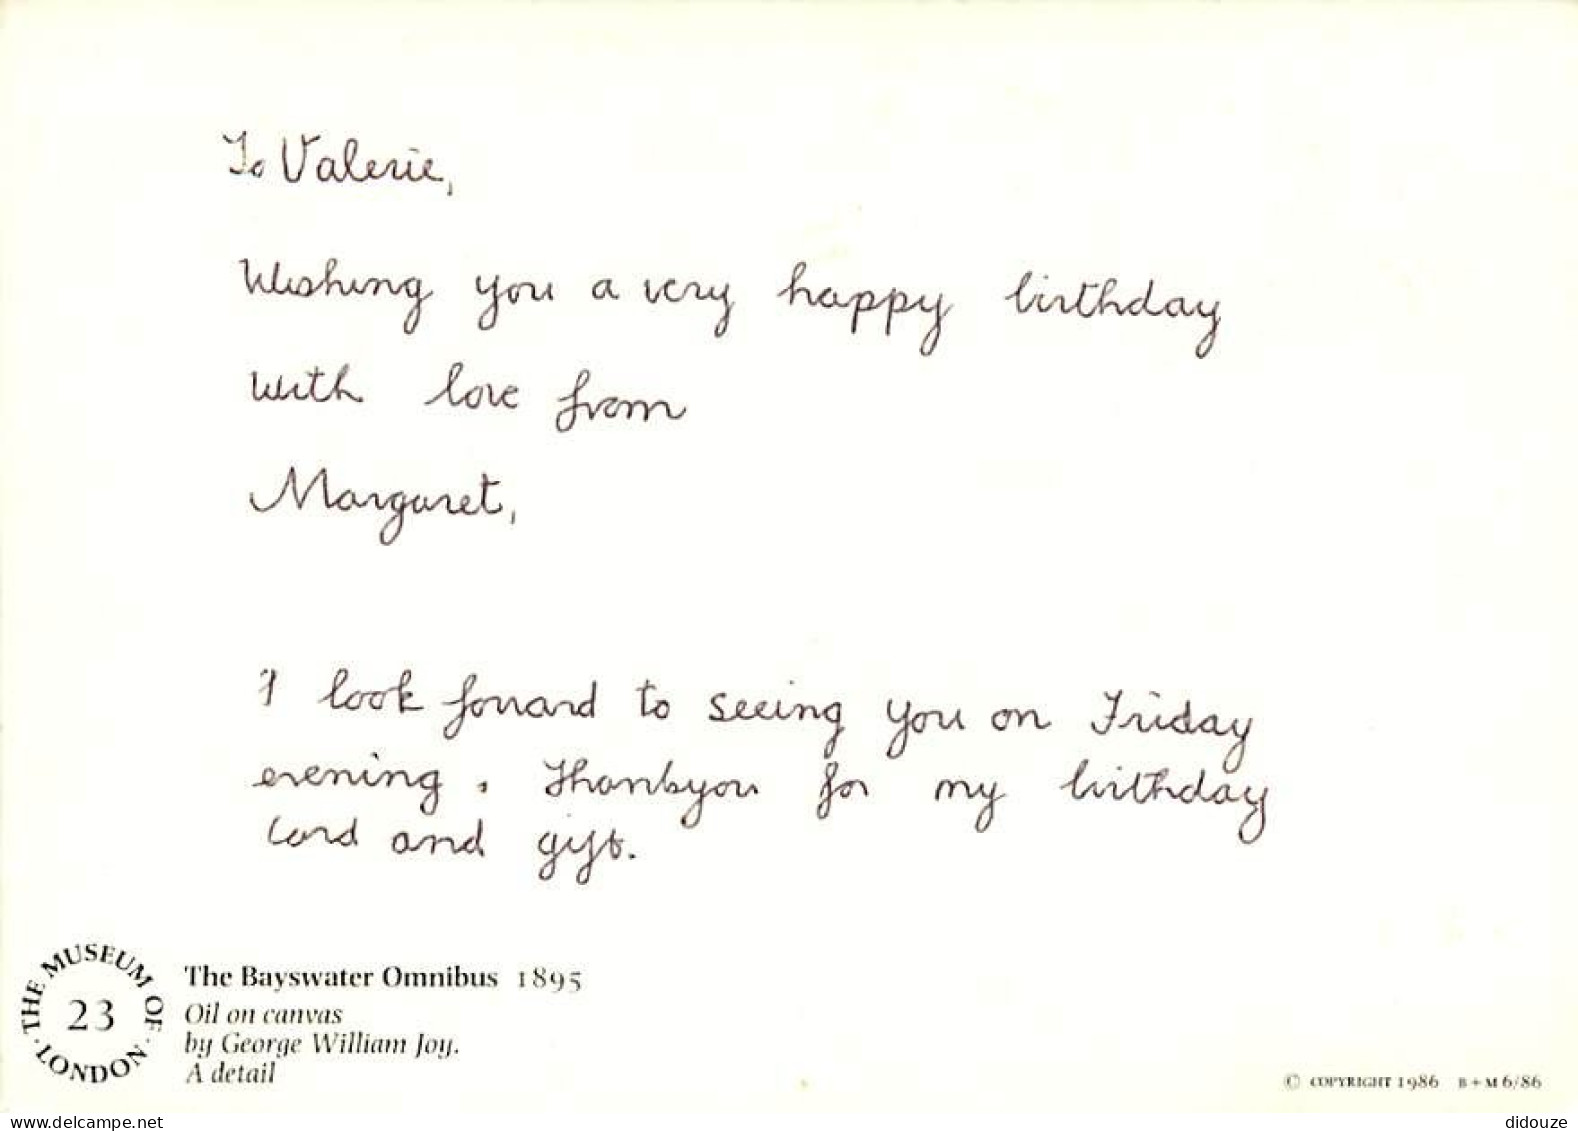 To Valerie,
Wishing you a very happy birthday
with love from
Margaret,
I look forward to seeing you on Friday
evening. Thankyou for my birthday
card and gift.
THE MUSEUM OF LONDON
23
The Bayswater Omnibus 1895
Oil on canvas
by George William Joy.
A detail
© COPYRIGHT 1986 B + M 6/86
www.delcampe.net
didouze